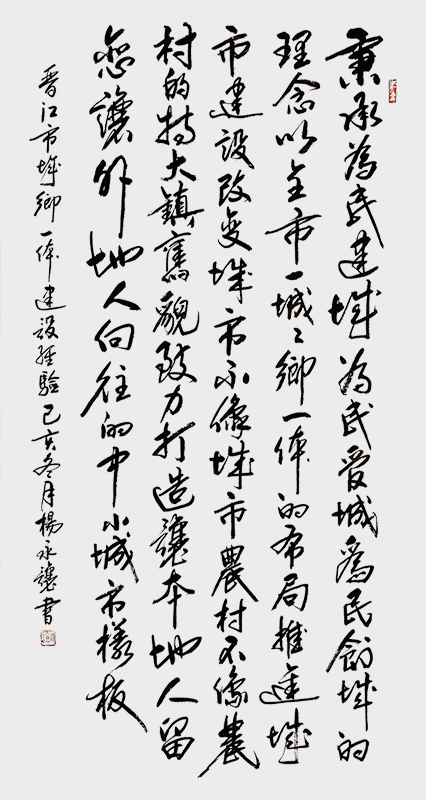 秉承為民建城為民愛城為民創城的
理念以全市一城々鄉一体的布局推進城
市建設改变城市不像城市農村不像農
村的特大鎮舊貌致力打造讓本地人留
恋讓外地人向往的中小城市樣板
晋江市城鄉一体建設经驗己亥冬月楊永讓書